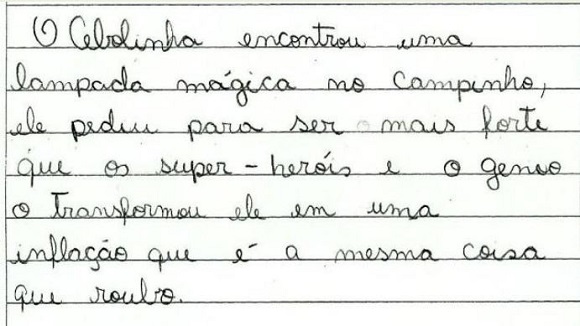 O Cebolinha encontrou uma
lampada mágica no campinho,
ele pediu para ser mais forte
que os super-heróis e o genio
o transformou ele em uma
inflação que é a mesma coisa
que roubo.